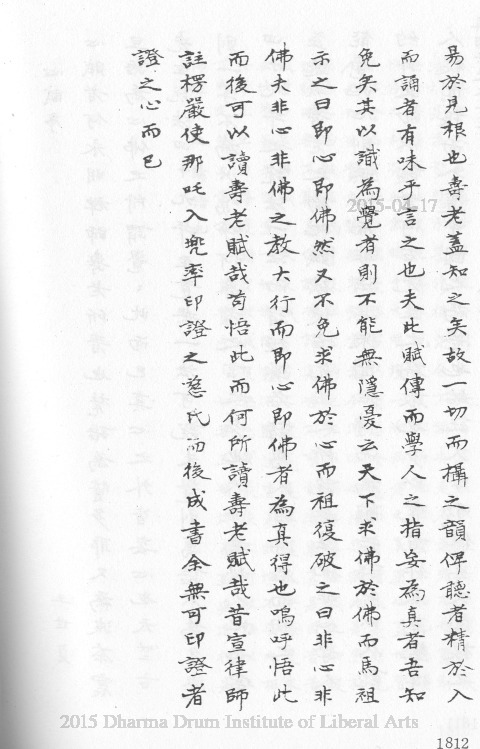 易於見根也壽老蓋知之矣故一切而攝之韻俾聽者精於入
而誦者有味乎言之也夫此賦傳而學人之指妄為真者吾知
免矣其以識為覺者則不能無隱憂云天下求佛於佛而馬祖
示之曰即心即佛然又不免求佛於心而祖復破之曰非心非
佛夫非心非佛之教大行而即心即佛者為真得也嗚呼悟此
而後可以讀壽老賦哉苟悟此而何所讀壽老賦哉昔宣律師
註楞嚴使那吒入兜率印證之慈氏而後成書余無可印證者
證之心而已
2015-04-17
2015 Dharma Drum Institute of Liberal Arts
1812